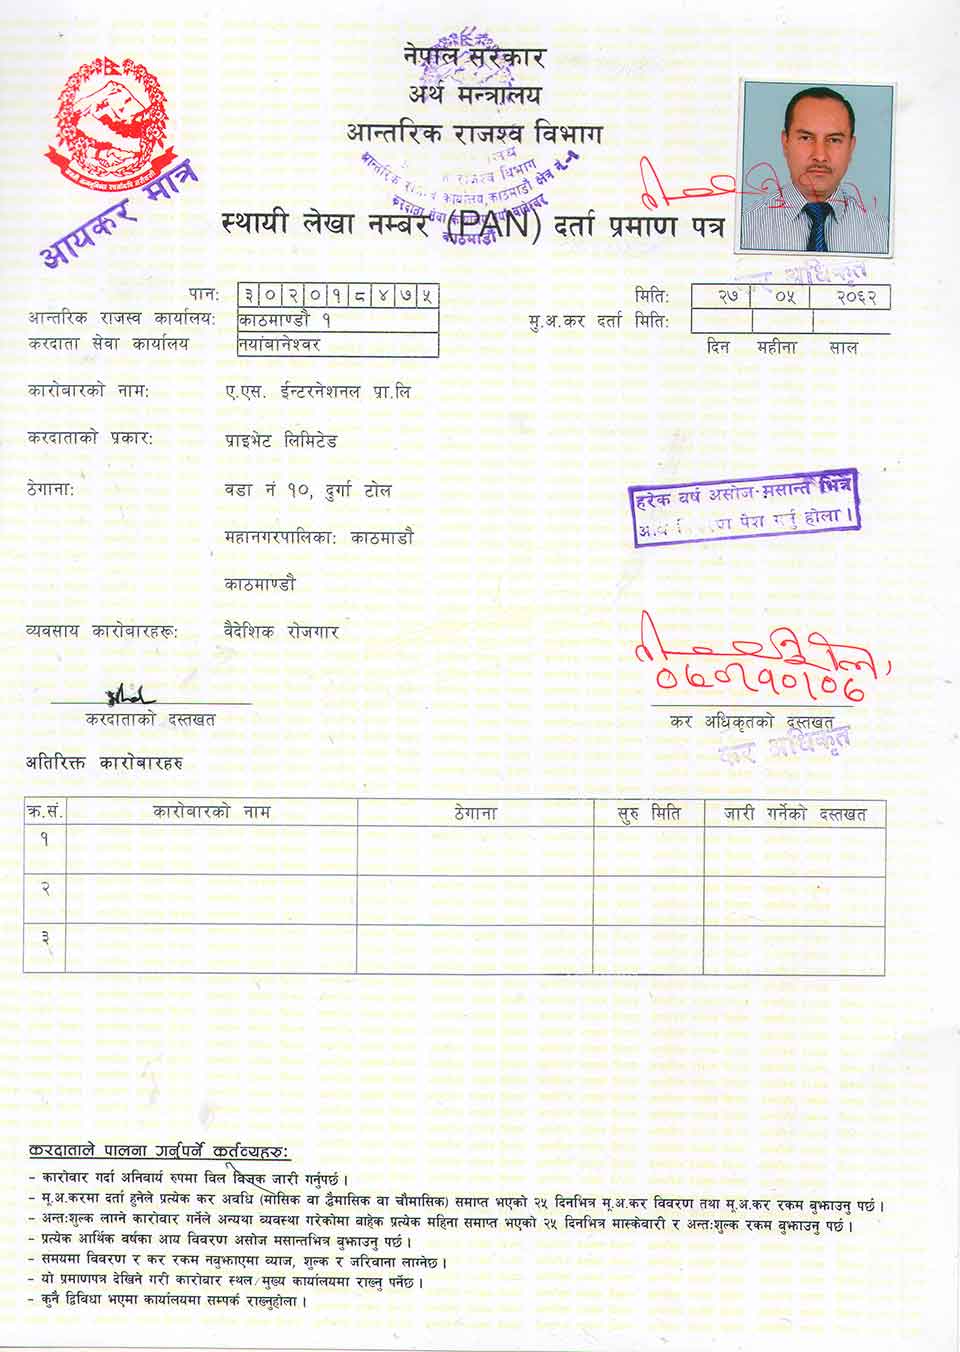 नेपाल सरकार
अर्थ मन्त्रालय
आन्तरिक राजश्व विभाग
आयकर मात्र
राजश्व विभाग
आन्तरिक राजश्व कार्यालय, काठमाडौं क्षेत्र नं.-१
करदाता सेवा कार्यालय नयाँ बानेश्वर
काठमाडौं
स्थायी लेखा नम्बर (PAN) दर्ता प्रमाण पत्र
कर अधिकृत
पान: ३०२०१८४७५
मिति: २७ ०५ २०६२
आन्तरिक राजस्व कार्यालय: काठमाण्डौ १
मु.अ.कर दर्ता मिति:
करदाता सेवा कार्यालय नयांबानेश्वर
दिन महीना साल
कारोबारको नाम: ए.एस. ईन्टरनेशनल प्रा.लि
करदाताको प्रकार: प्राइभेट लिमिटेड
ठेगाना: वडा नं १०, दुर्गा टोल
हरेक वर्ष असोज-मसान्त भित्र
पेश गर्नु होला।
महानगरपालिका: काठमाडौ
काठमाण्डौ
व्यवसाय कारोबारहरू: वैदेशिक रोजगार
करदाताको दस्तखत
कर अधिकृतको दस्तखत
कर अधिकृत
अतिरिक्त कारोबारहरु
क्र.सं. कारोबारको नाम ठेगाना सुरु मिति जारी गर्नेको दस्तखत
१
२
३
करदाताले पालना गर्नुपर्ने कर्तव्यहरु:
- कारोबार गर्दा अनिवार्य रुपमा विल विजक जारी गर्नुपर्छ ।
- मू.अ.करमा दर्ता हुनेले प्रत्येक कर अवधि (मासिक वा द्वैमासिक वा चौमासिक) समाप्त भएको २५ दिनभित्र मू.अ.कर विवरण तथा मू.अ.कर रकम बुझाउनु पर्छ ।
- अन्तःशुल्क लाग्ने कारोबार गर्नेले अन्यथा व्यवस्था गरेकोमा बाहेक प्रत्येक महिना समाप्त भएको २५ दिनभित्र मास्केवारी र अन्तःशुल्क रकम बुझाउनु पर्छ ।
- प्रत्येक आर्थिक वर्षका आय विवरण असोज मसान्तभित्र बुझाउनु पर्छ ।
- समयमा विवरण र कर रकम नबुझाएमा ब्याज, शुल्क र जरिवाना लाग्नेछ ।
- यो प्रमाणपत्र देखिने गरी कारोबार स्थल/मुख्य कार्यालयमा राख्नु पर्नेछ ।
- कुनै द्विविधा भएमा कार्यालयमा सम्पर्क राख्नुहोला ।